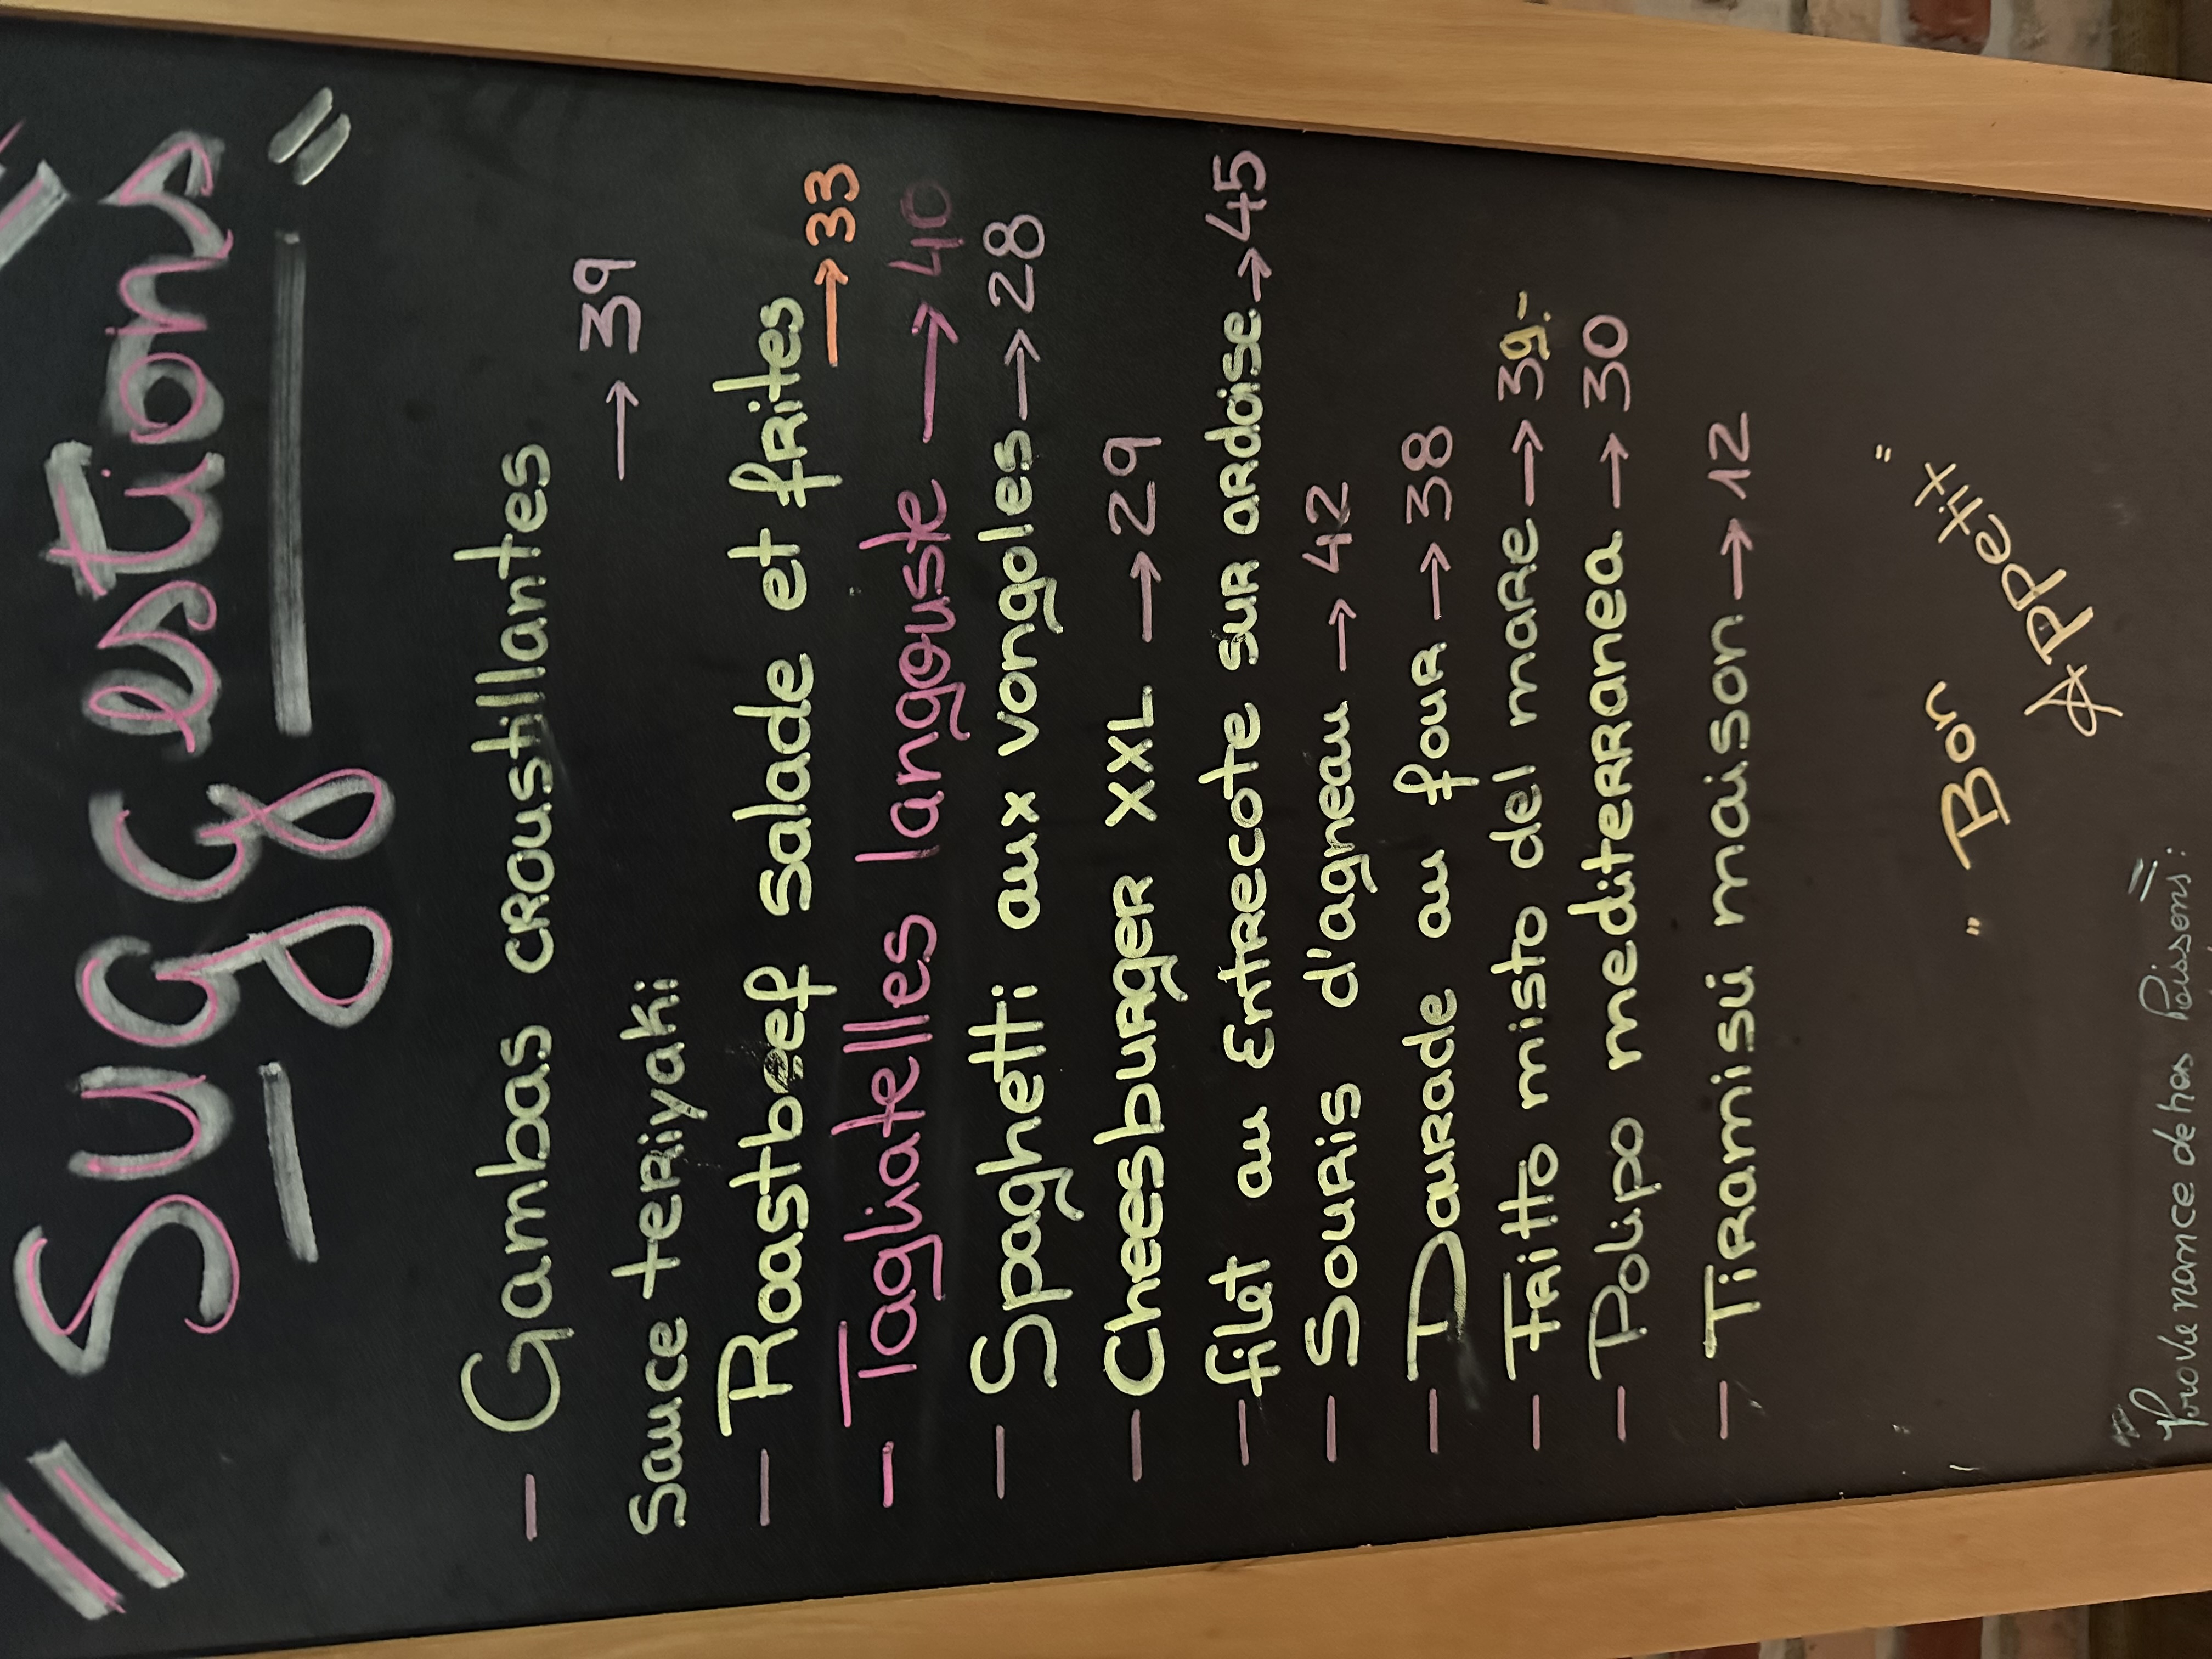 "Suggestions"
- Gambas croustillantes
Sauce teriyaki → 39
- Roastbeef salade et frites
→ 33
- Tagliatelles langouste → 40
- Spaghetti aux vongoles → 28
- Cheesburger XXL → 29
- filet au Entrecote sur ardoise → 45
- Souris d'agneau → 42
- Daurade au four → 38
- Fritto misto del mare → 39.-
- Polipo mediterranea → 30
- Tiramisù maison → 12
" Bon Appetit "
Provenance de nos Poissons :